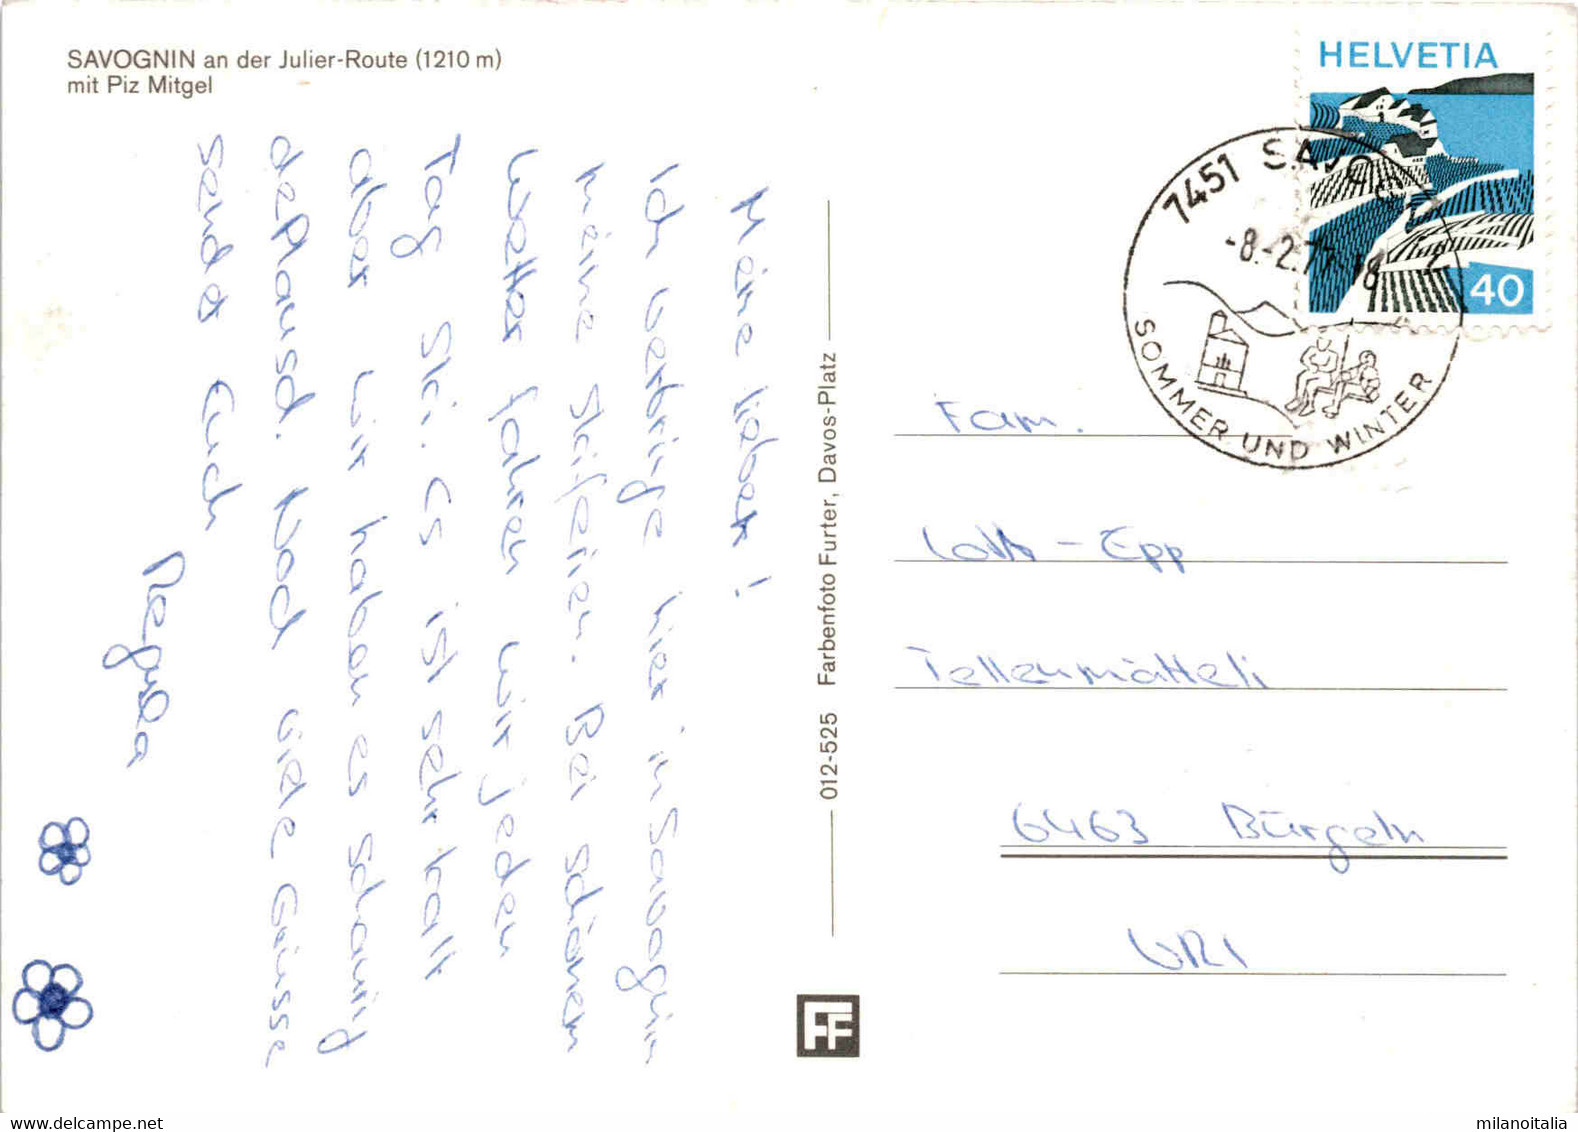 SAVOGNIN an der Julier-Route (1210 m)
mit Piz Mitgel
Meine lieben!
Ich verbringe hier in Savognin
meine Skiferien. Bei schönem
Wetter fahren wir jeden
Tag Ski. Es ist sehr kalt
aber wir haben es schaurig
der Plausch. Noch viele Grüsse
sendet Euch
Regula
012-525 Farbenfoto Furter, Davos-Platz
FF
HELVETIA
40
7451 SAVOG
-8.-2.77 18
SOMMER UND WINTER
Fam.
Epp
Tellenmätteli
6463 Bürgeln
URI
milanoitalia